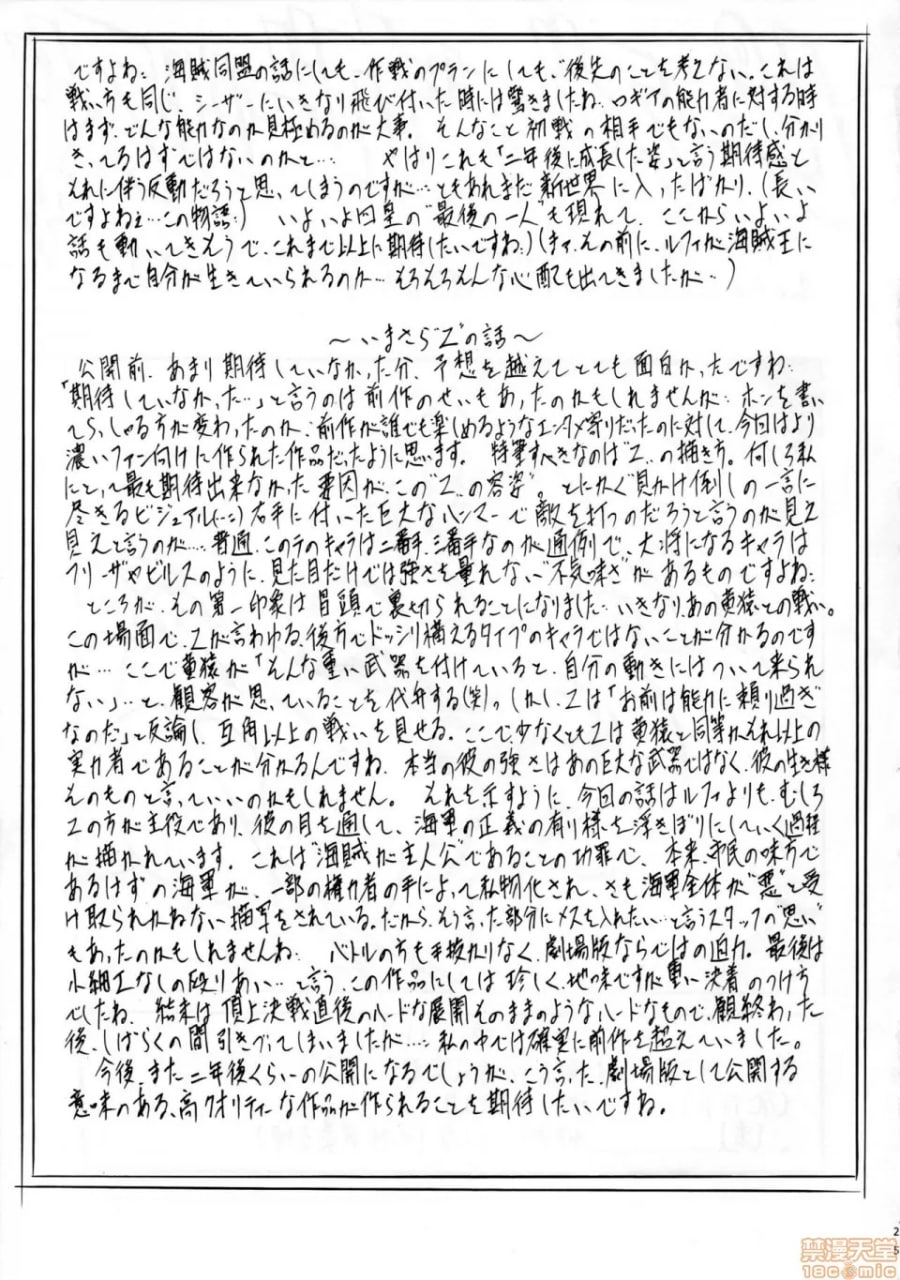 ですよね〟海賊同盟の話にしても、作戦のプランにしても、後先のことを考えない。これは
戦い方も同じ、シーザーにいきなり飛び付いた時には驚きましたね…ロギアの能力者に対する時
はまず、どんな能力なのか見極めるのが大事。そんなこと初戦の相手でもないのだし、分かり
きってるはずではないのかと… やはりこれも「二年後に成長した姿」と言う期待感と
それに伴う反動だろうと思ってしまうのですが…ともあれまだ新世界に入ったばかり、(長い
ですよねェ…この物語〟) いよいよ四皇の〝最後の一人〟も現れて、ここからいよいよ
話も動いてきそうで、これまで以上に期待したいですね〟)(まァ、その前に、ルフィが海賊王に
なるまで自分が生きていられるのか…そろそろそんな心配も出てきましたが…)
〜いまさら〝Z〟の話〜
公開前、あまり期待していなかった分、予想を越えてとても面白かったですね〟
「期待していなかった…」と言うのは前作のせいもあったのかもしれませんが…ホンを書い
てらっしゃる方が変わったのか、前作が誰でも楽しめるようなエンタメ寄りだったのに対して、今回はより
濃いファン向けに作られた作品だったように思います。 特筆すべきなのは〝Z〟の描き方。何しろ私
にとって最も期待出来なかった要因が、この〝Z〟の容姿〟。とにかく〝見かけ倒しの一言に
尽きるビジュアル(…;)右手に付いた巨大なハンマーで敵を打つのだろうと言うのが見え
見えと言うのが…普通、このテのキャラは二番手、三番手なのが通例で、大将になるキャラは
フリーザやビルスのように、見た目だけでは強さを量れない〝不気味さ〟があるものですよね〟
ところが、その第一印象は冒頭で裏切られることになりました…いきなり、あの黄猿との戦い。
この場面で、Zが言わゆる、後方でドッシリ構えるタイプのキャラではないことが分かるのです
が…ここで黄猿が「そんな重い武器を付けていると、自分の動きにはついて来られ
ない」…と、観客が思っていることを代弁する(笑)。しかし、Zは「お前は能力に頼り過ぎ
なのだ」と反論し、互角以上の戦いを見せる。ここで少なくともZは黄猿と同等かそれ以上の
実力者であることが分かるんですね、本当の彼の強さはあの巨大な武器ではなく、彼の生き様
そのものと言っていいのかもしれません。 それを示すように、今回の話はルフィよりも、むしろ
Zの方が主役であり、彼の目を通して、海軍の正義の有り様を浮きぼりにしていく過程
が描かれています。これは〝海賊が主人公〟であることの功罪で、本来、市民の味方で
あるはずの海軍が、一部の権力者の手によって私物化され、さも海軍全体が〝悪〟と受
け取られかねない描写をされている。だから、そう言った部分にメスを入れたい…と言うスタッフの〝思い〟
もあったのかもしれませんね〟 バトルの方も手抜かりなく、劇場版ならではの迫力。最後は
小細工なしの殴りあい…と言う、この作品にしては珍しく、地味ですが重い決着のつけ方
でしたね〟結末は頂上決戦直後のハードな展開そのままのようなハードなもので、観終わった
後、しばらくの間引きづってしまいましたが…私の中では確実に前作を超えていました。
今後、また二年後くらいの公開になるでしょうが、こう言った、劇場版として公開する
意味のある、高クオリティーな作品が作られることを期待したいですね。
25
禁漫天堂
18comic